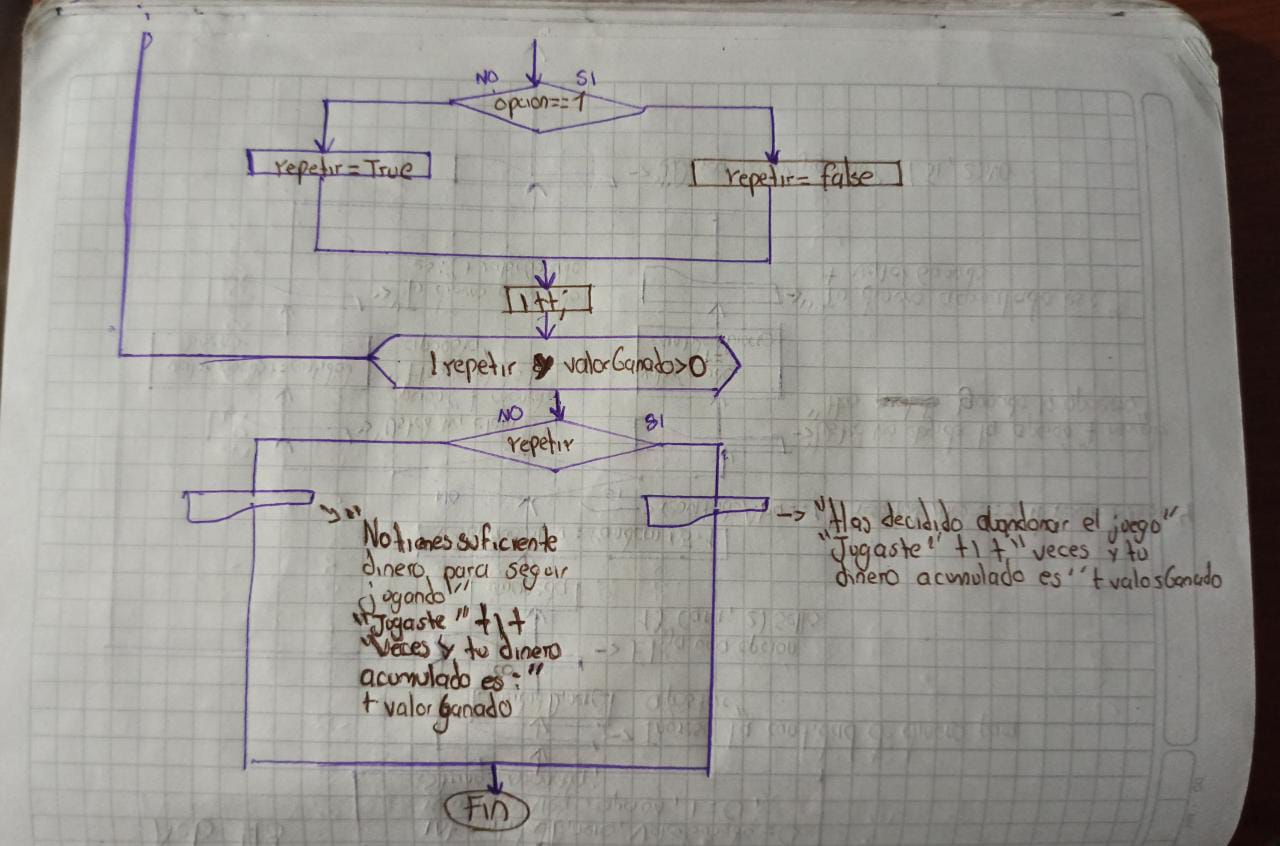 NO SI
opcion==1
repetir=True
repetir=false
i++;
!repetir y valorGanado>0
NO SI
repetir
"
No tienes suficiente
dinero para seguir
jugando"
"Jugaste "+i+
"veces y tu dinero
acumulado es:"
+valorGanado
"Has decidido abandonar el juego"
"Jugaste"+i+"veces y tu
dinero acumulado es"+valosGanado
Fin